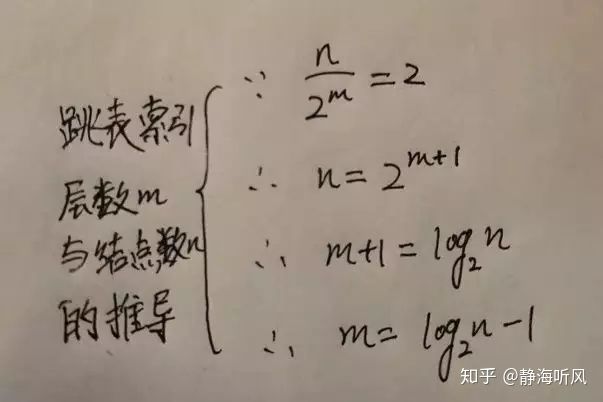 跳表索引
层数m
与结点数n
的推导
∵ n/2^m = 2
∴ n = 2^{m+1}
∴ m+1 = log_2 n
∴ m = log_2 n - 1
知乎 @静海听风